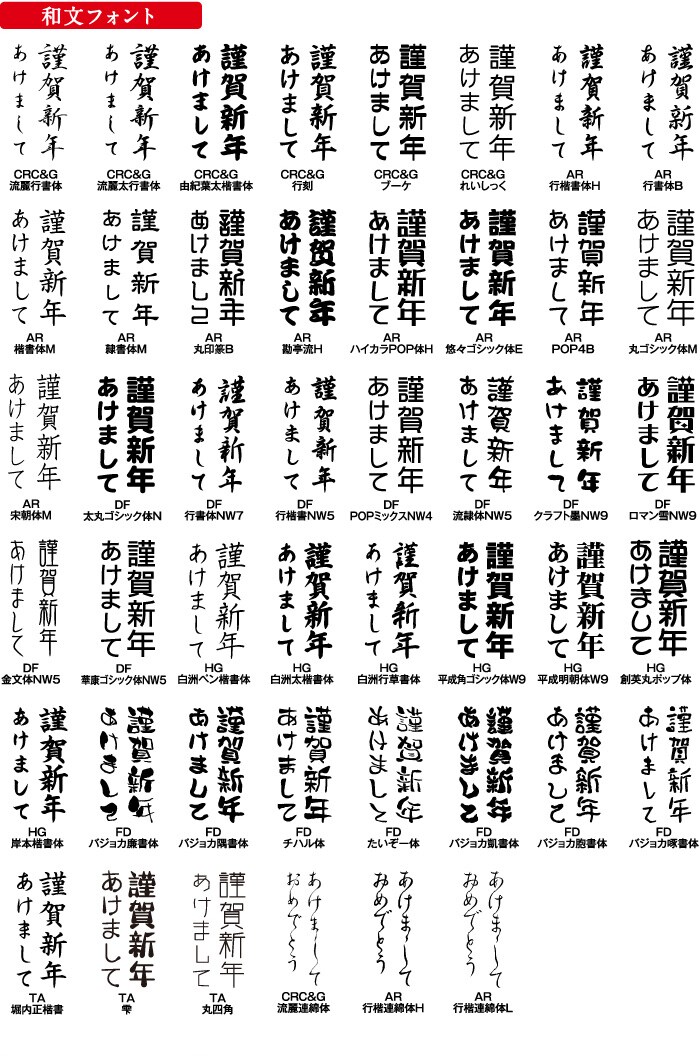 和文フォント
謹賀新年
あけまして
CRC&G
流麗行書体
謹賀新年
あけまして
CRC&G
流麗太行書体
謹賀新年
あけまして
CRC&G
由紀葉太楷書体
謹賀新年
あけまして
CRC&G
行刻
謹賀新年
あけまして
CRC&G
ブーケ
謹賀新年
あけまして
CRC&G
れいしっく
謹賀新年
あけまして
AR
行楷書体H
謹賀新年
あけまして
AR
行書体B
謹賀新年
あけまして
AR
楷書体M
謹賀新年
あけまして
AR
隷書体M
謹賀新年
あけまして
AR
丸印篆B
謹賀新年
あけまして
AR
勘亭流H
謹賀新年
あけまして
AR
ハイカラPOP体H
謹賀新年
あけまして
AR
悠々ゴシック体E
謹賀新年
あけまして
AR
POP4B
謹賀新年
あけまして
AR
丸ゴシック体M
謹賀新年
あけまして
AR
宋朝体M
謹賀新年
あけまして
DF
太丸ゴシック体N
謹賀新年
あけまして
DF
行書体NW7
謹賀新年
あけまして
DF
行楷書NW5
謹賀新年
あけまして
DF
POPミックスNW4
謹賀新年
あけまして
DF
流隷体NW5
謹賀新年
あけまして
DF
クラフト墨NW9
謹賀新年
あけまして
DF
ロマン雪NW9
謹賀新年
あけまして
DF
金文体NW5
謹賀新年
あけまして
DF
華康ゴシック体NW5
謹賀新年
あけまして
HG
白洲ペン楷書体
謹賀新年
あけまして
HG
白洲太楷書体
謹賀新年
あけまして
HG
白洲行草書体
謹賀新年
あけまして
HG
平成角ゴシック体W9
謹賀新年
あけまして
HG
平成明朝体W9
謹賀新年
あけまして
HG
創英丸ポップ体
謹賀新年
あけまして
HG
岸本楷書体
謹賀新年
あけまして
FD
バジョカ廉書体
謹賀新年
あけまして
FD
バジョカ隅書体
謹賀新年
あけまして
FD
チハル体
謹賀新年
あけまして
FD
たいぞー体
謹賀新年
あけまして
FD
バジョカ凱書体
謹賀新年
あけまして
FD
バジョカ胞書体
謹賀新年
あけまして
FD
バジョカ啄書体
謹賀新年
あけまして
TA
堀内正楷書
謹賀新年
あけまして
TA
雫
謹賀新年
あけまして
TA
丸四角
あけまして
おめでとう
CRC&G
流麗連綿体
あけまして
おめでとう
AR
行楷連綿体H
あけまして
おめでとう
AR
行楷連綿体L